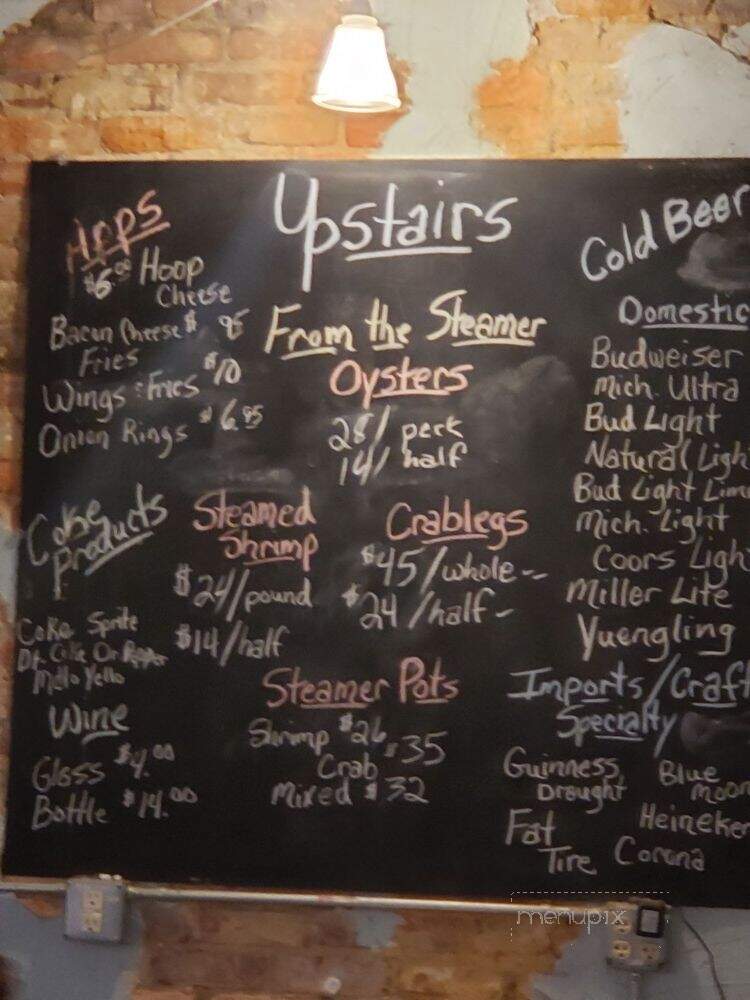 Upstairs
Apps
$6.00 Hoop
Cheese
Bacon Cheese $ 95
Fries
Wings & Fries $10
Onion Rings $6.95
Coke
Products
Coke Sprite
Dt. Coke Dr Pepper
Mello Yello
Wine
Glass $4.00
Bottle $14.00
From the Steamer
Oysters
28/ peck
14/ half
Steamed
Shrimp
$24/pound
$14/half
Crablegs
$45/whole--
$24/half-
Steamer Pots
Shrimp $26
Crab $35
Mixed $32
Cold Beer
Domestic
Budweiser
Mich. Ultra
Bud Light
Natural Ligh
Bud Light Lim
Mich. Light
Coors Ligh
Miller Lite
Yuengling
Imports/Craft
Specialty
Guinness
Draught
Blue
Moon
Fat
Tire
Heineken
Corona
menupix